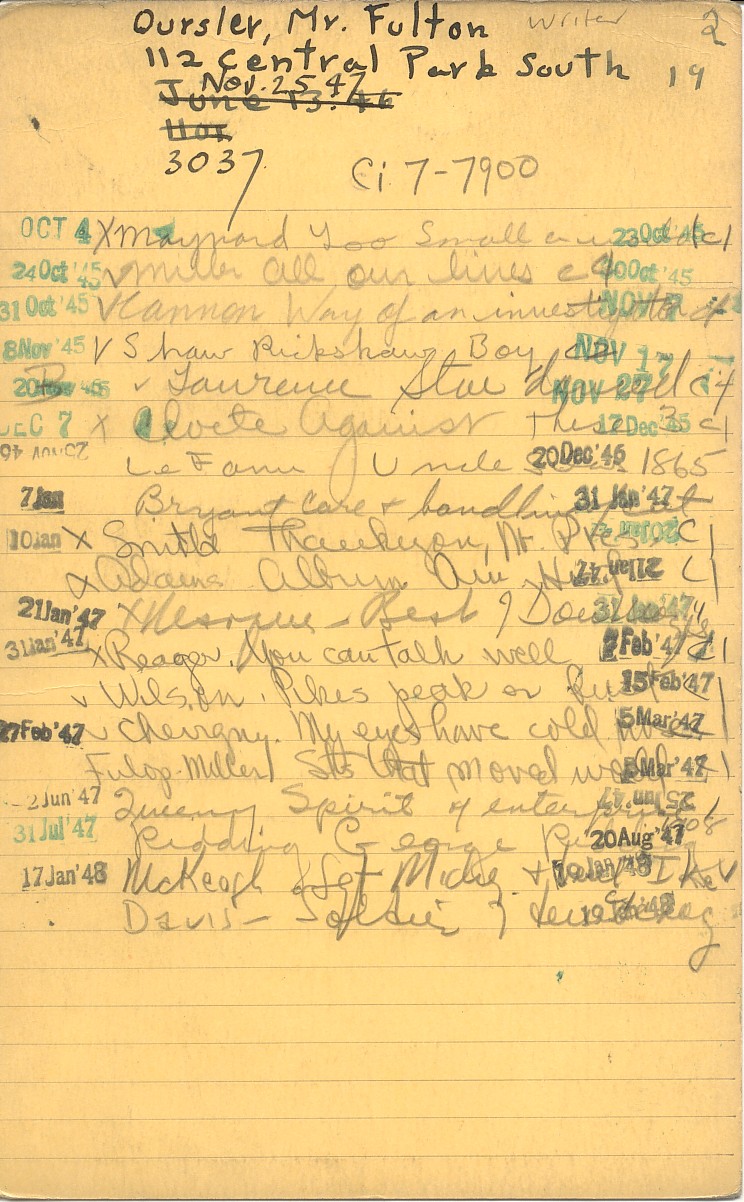 Oursler, Mr. Fulton Writer 2
112 Central Park South 19
Nov. 25 47
June 13. 46
3037 Ci 7-7900
OCT 4 X Maynard Too Small a 23 Oct '45 c1
24 Oct '45 v Miller All our lives c4 Oct '45
31 Oct '45 v Cannon Way of an investigator NOV 7
8 Nov '45 v Shaw Rickshaw Boy NOV 17
v Laurence Star NOV 27 c4
DEC 7 X Cloete Against These 3 12 Dec '45 c1
25 NOV 46 LeFanu Uncle Silas 20 Dec '46 1865
7 Jan Bryant Care + handling 31 Jan '47
10 Jan X Smith Thank you, Mr. Pres 20 Jan 47 c1
X Adams Album Am. Hist 21 Jan '47 c1
21 Jan '47 X Best 31 Jan '47
31 Jan '47 X Reager. You can talk well Feb '47 c1
v Wilson. Pikes peak or Bust 15 Feb '47
27 Feb '47 v Chevigny. My eyes have cold 5 Mar '47
Fulop-Miller Sts that moved world Mar '47
2 Jun '47 Queeny Spirit of enterprise 25 Jun 47
31 Jul '47 Ridding George 20 Aug '47
17 Jan '48 McKeogh Sgt Mickey + 19 Jan '48
Davis - Soldier of 19 Jan '48